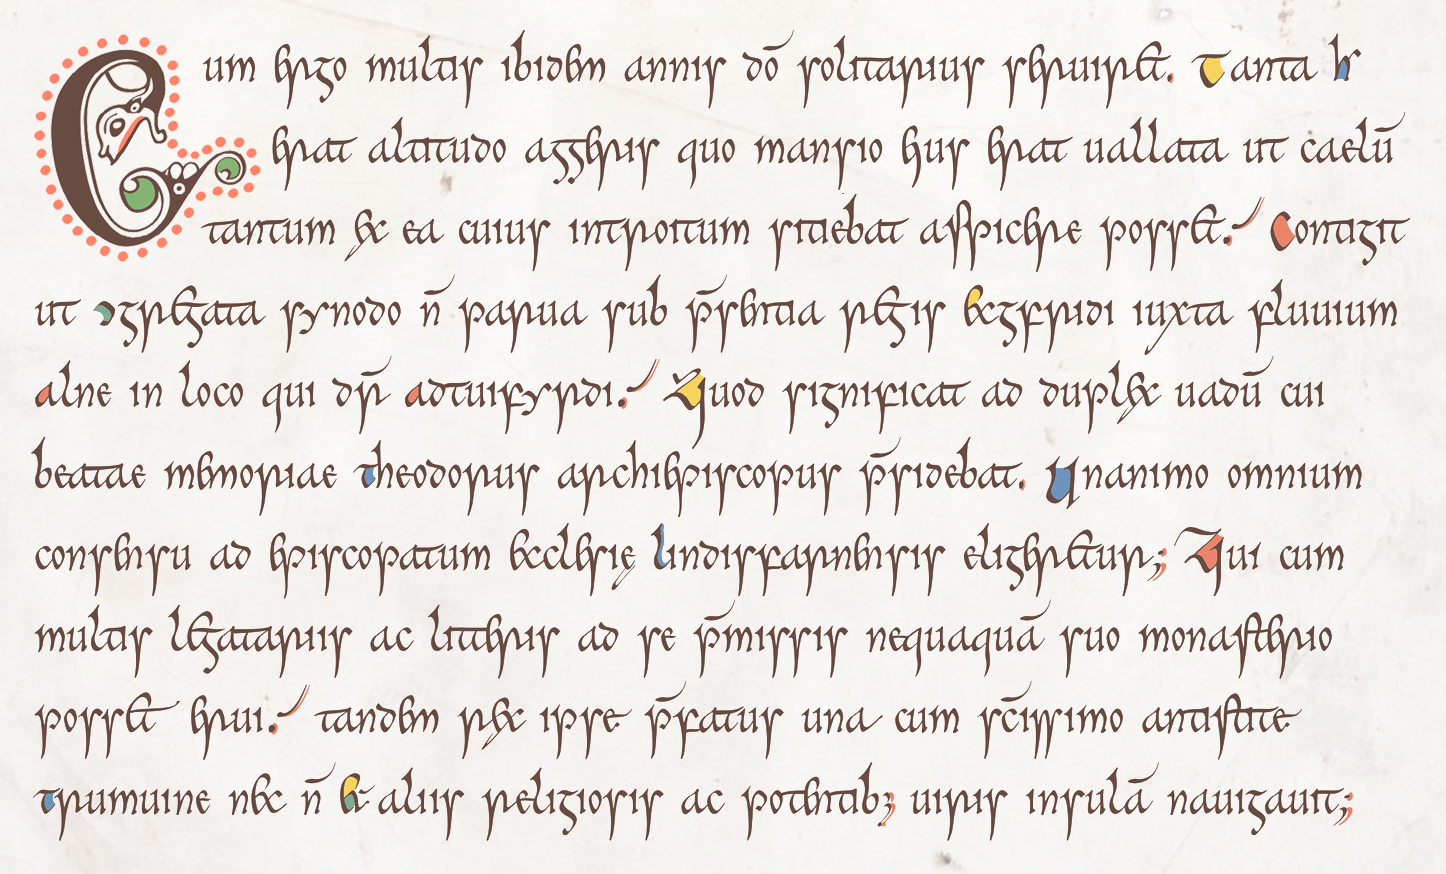 Cum ergo multis ibidem annis dō solitarius seruiret. Tanta hʼ
erat altitudo aggeris quo mansio eius erat uallata ut caelū
tantum ex ea cuius introitum sitiebat aspicere posset. Contigit
ut ɔgregata synodo n̄ parua sub p̄sentia regis ecgfridi iuxta fluuium
alne in loco qui dr̄ adtuifyrdi. Quod significat ad duplex uadū cui
beatae memoriae theodorus archiepiscopus p̄sidebat. Unanimo omnium
consensu ad episcopatum ecclesię lindisfarnensis eligeretur; Qui cum
multis legatariis ac litteris ad se p̄missis nequaquā suo monasterio
posset erui. tandem rex ipse p̄fatus una cum sc̄issimo antistite
trumuine nec n̄ et aliis religiosis ac potentib; uiris insulā nauigauit;